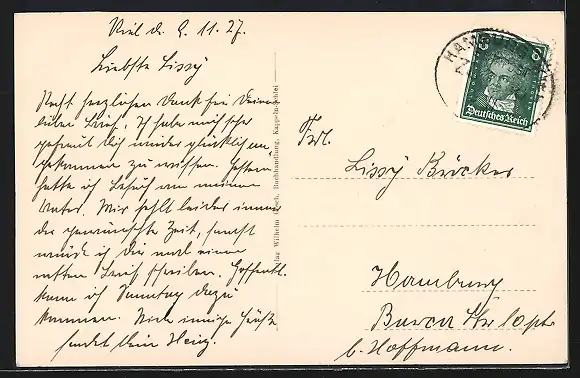 Kiel d. 9. 11. 27.
Liebste Lissy
Recht herzlichen Dank für Deinen
lieben Brief. Ich habe mich sehr
gefreut Dich wieder glücklich an-
gekommen zu wissen. Gestern
hatte ich Besuch von meinem
Vater. Mir fehlt leider immer
die gewünschte Zeit, sonst
würde ich Dir mal einen
netten Brief schreiben. Hoffentl.
kann ich Sonntag dazu
kommen. Viele innige Grüße
sendet Dein Heinz.
Verlag Wilhelm Buchhandlung, Kappeln-Schlei
HAMBURG
8
Deutsches Reich
Frl.
Lissy Bröcker
Hamburg
Str. 10 ptr
b. Hoffmann.